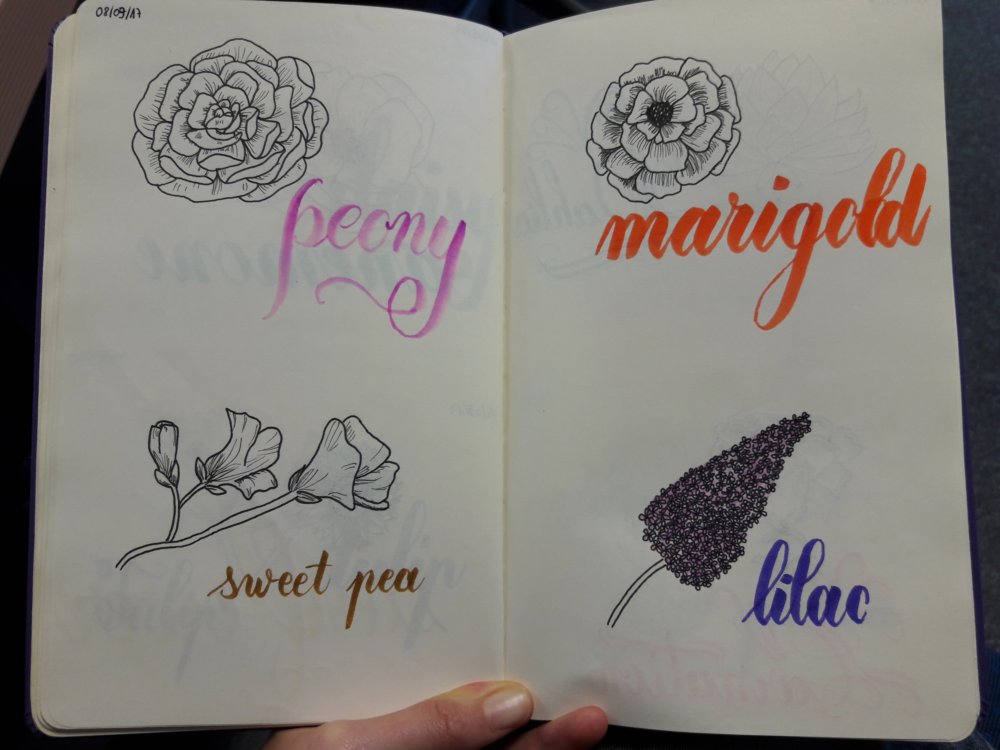 08/09/17
peony
sweet pea
marigold
lilac